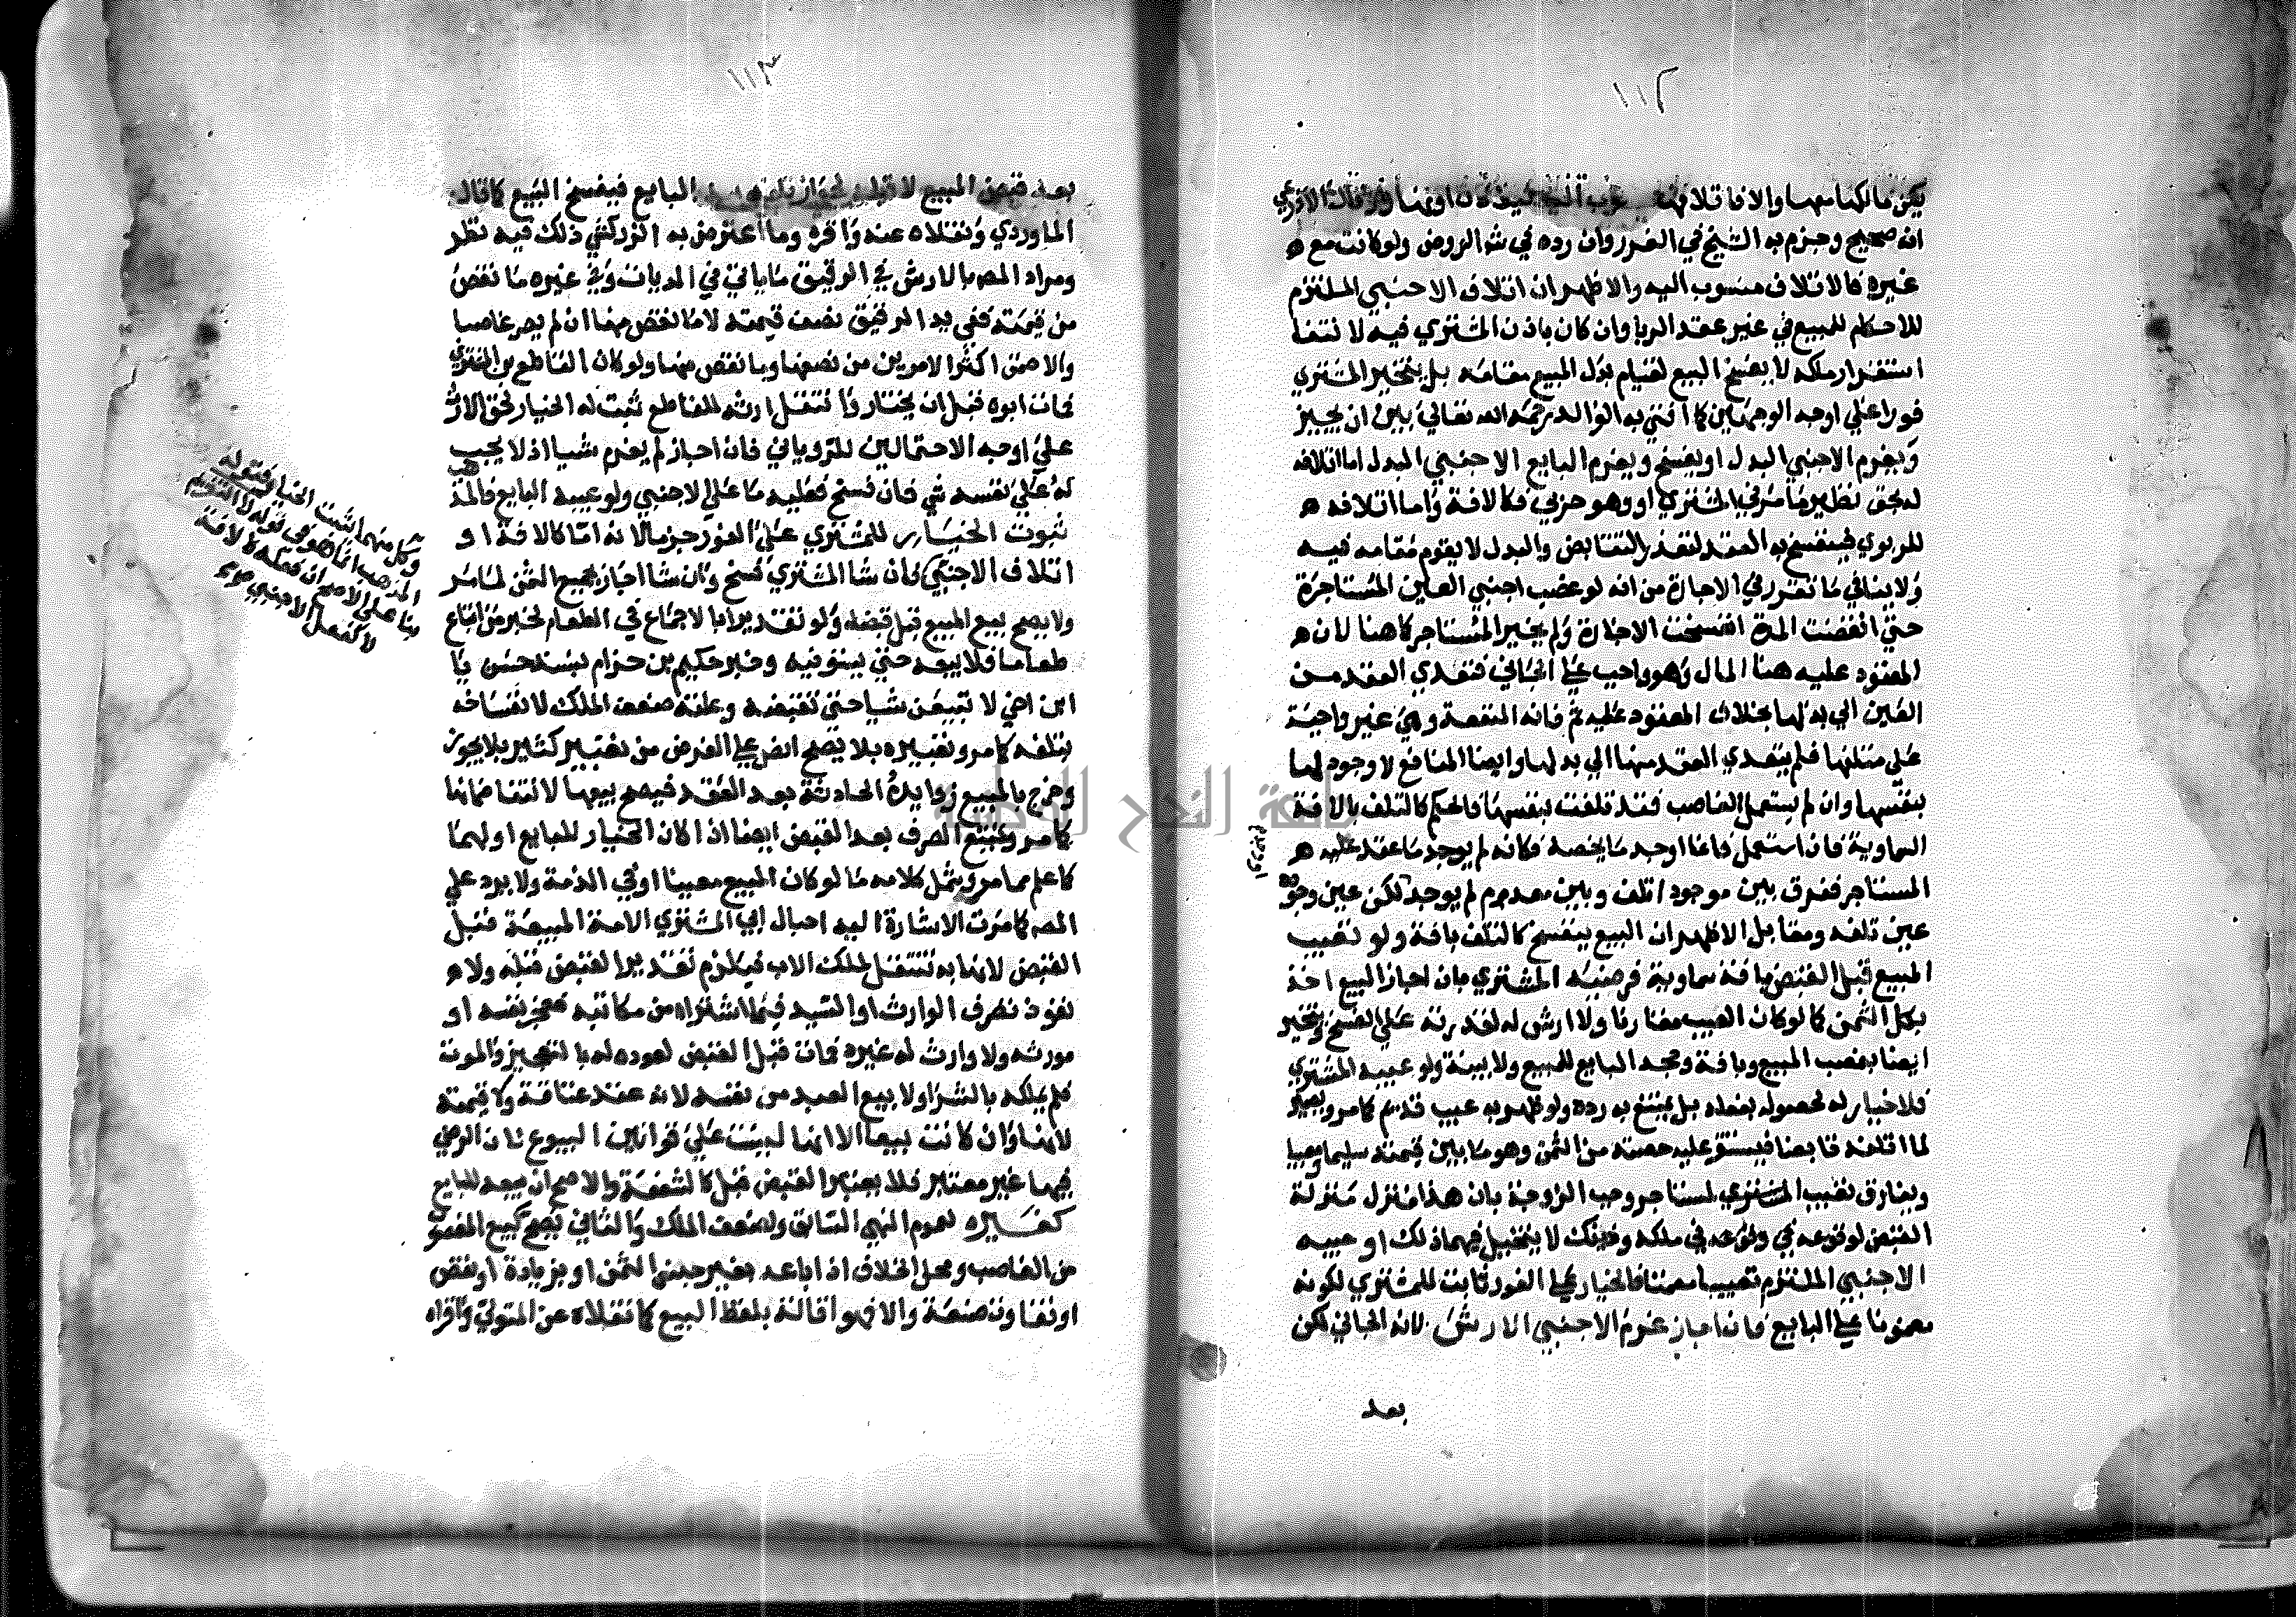 ١١٢
يكن مالكها معها والا فاتلافها
انه صحيح وجزم به الشيخ في الغرر وان رده في شرح الروض ولو كانت مع ه
غيره فالاتلاف منسوب اليه والاظهر ان اتلاف الاجنبي الملتزم
للاحكام للمبيع في غير عقد الربا وان كان باذن المشتري فيه لانتفا
استقرار ملكه لا يفسخ البيع لقيام بدل المبيع مقامه بل يتخير المشتري
فورا علي اوجه الوجهين كما افتي به الوالد رحمه الله تعالي بين ان يجيز
ويغرم الاجنبي البدل او يفسخ ويغرم البايع الاجنبي البدل اما اتلافه
له بحق نظير ما مر في المشتري او وهو حربي فكالافة واما اتلافه ه
للربوي فينفسخ به العقد لتعذر التقابض والبدل لا يقوم مقامه فيه
ولا ينافي ما تقرر في الاجارة من انه لو غصب اجنبي العين المستاجرة
حتي انقضت المدة انفسخت الاجارة ولم يخير المستاجر كما هنا لان ه
المعقود عليه هنا المال وهو واجب علي الجاني فتعدي العقد من
العين الي بدلها بخلاف المعقود عليه ثم فانه المنفعة وهي غير واجبة
علي متلفها فلم يتعدي العقد منها الي بدلها وايضا المنافع لا وجود لها
بنفسها وان لم يستعمل الغاصب فقد تلفت بنفسها فالحكم كالتلف بالافة
السماوية فان استعمل فانما اوجد ما يخصه فكانه لم يوجد ما عقد عليه ه
المستاجر ففرق بين موجود اتلف وبين معدوم لم يوجد لكن عين وجوده
عين تلفه ومقابل الاظهر ان البيع ينفسخ كالتلف بافة ولو تعيب
المبيع قبل القبض بافة سماوية فرضيه المشتري بان اجاز البيع اخذ
بكل الثمن كما لو كان العيب مقارنا ولا ارش له لقدرته علي الفسخ ويتخير
ايضا بغصب المبيع وباقة وجحد البايع للمبيع ولا بينة ولو عيبه المشتري
فلا خيار له لحصوله بفعله بل يمتنع به رده ولو ظهر به عيب قديم كما مر ويصير
لما اتلفه قابضا فيستقر عليه حصته من الثمن وهو ما بين قيمته سليما ومعيبا
ويفارق تعيب المشتري لمستاجر وجب الزوجة بان هذا منزل منزلة
القبض لوقوعه في ملكه وذينك لا يتخيل فيهما ذلك او عيبه
الاجنبي الملتزم تعييبا مضمنا فالخيار علي الفور ثابت للمشتري لكونه
مضمونا علي البايع فان اجاز غرم الاجنبي الارش لانه الجاني لكن
بعد
١١٣
بعد قبض المبيع لا قبله لجواز تلفه بيد البايع فيفسخ البيع كما قاله
الماوردي ونقلاه عنه واقره وما اعترض به الزركشي ذلك فيه نظر
ومراد المص بالارش في الرقيق ما ياتي في الديات وفي غيره ما نقص
من قيمته ففي يد الرقيق نصف قيمته لا ما نقص منها ان لم يصر غاصبا
والا ضمن اكثر الامرين من نصفها وما نقص منها ولو كان القاطع بن المشتري
فمات ابوه قبل ان يختار وانتقل ارثه للقاطع ثبت له الخيار لحق الارث
علي اوجه الاحتمالين للروياني فان اجاز لم يغرم شيا اذ لا يجب
له علي نفسه شي فان فسخ فعليه ما علي الاجنبي ولو عيبه البايع فالمذهب
ثبوت الخيار للمشتري علي الفور جزما لانه اما كالافة او
اتلاف الاجنبي فان شا المشتري فسخ وان شا اجاز بجميع الثمن لما مر
ولا يصح بيع المبيع قبل قبضه ولو تقديرا بالاجماع في الطعام لخبر من ابتاع
طعاما فلا يبعه حتي يستوفيه وخبر حكيم بن حزام بسند حسن يا
ابن اخي لا تبيعن شيا حتي تقبضه وعلته ضعف الملك لانفساخه
بتلفه كما مر وتعبيره بلا يصح انص علي الغرض من تعبير كثير بلا يجوز
وخرج بالمبيع زوايده الحادثة بعد العقد فيصح بيعها لانتفا ضمانها
كما مر ويمتنع التصرف بعد القبض ايضا اذا كان الخيار للبايع او لهما
كما علم مما مر ويشمل كلامه ما لو كان المبيع معينا او في الذمة ولا يرد علي
المص كما مرت الاشارة اليه احبال ابي المشتري الامة المبيعة قبل
القبض لانها به تنتقل لملك الاب فيلزم تقدير القبض قبله ولا ه
نفوذ تصرف الوارث او السيد فيما اشتراه من مكاتبه فعجز نفسه او
مورثه ولا وارث له غيره فمات قبل القبض لعوده له بالتعجيز والموت
فلم يملكه بالشرا ولا بيع العبد من نفسه لانه عقد عتاقة ولا قيمته
لانها وان كانت بيعا الا انها ليست علي قوانين البيوع لان الرضي
فيها غير معتبر فلا يعتبر القبض قبل كالشفعة والاصح ان بيعه للبايع
كغيره لعموم النهي السابق ولضعف الملك والثاني يصح كبيع المغصوب
من الغاصب ومحل الخلاف اذا باعه بغير جنس الثمن او بزيادة او نقص
او تفاوت صفة والا فهو اقالة بلفظ البيع كما نقلاه عن المتولي واقراه
وكل منهما يثبت الخيار فقوله
المذهب انما هو في قوله لا التغريم
بنا علي الاصح ان فعله كالافة
لا كفعل الاجنبي